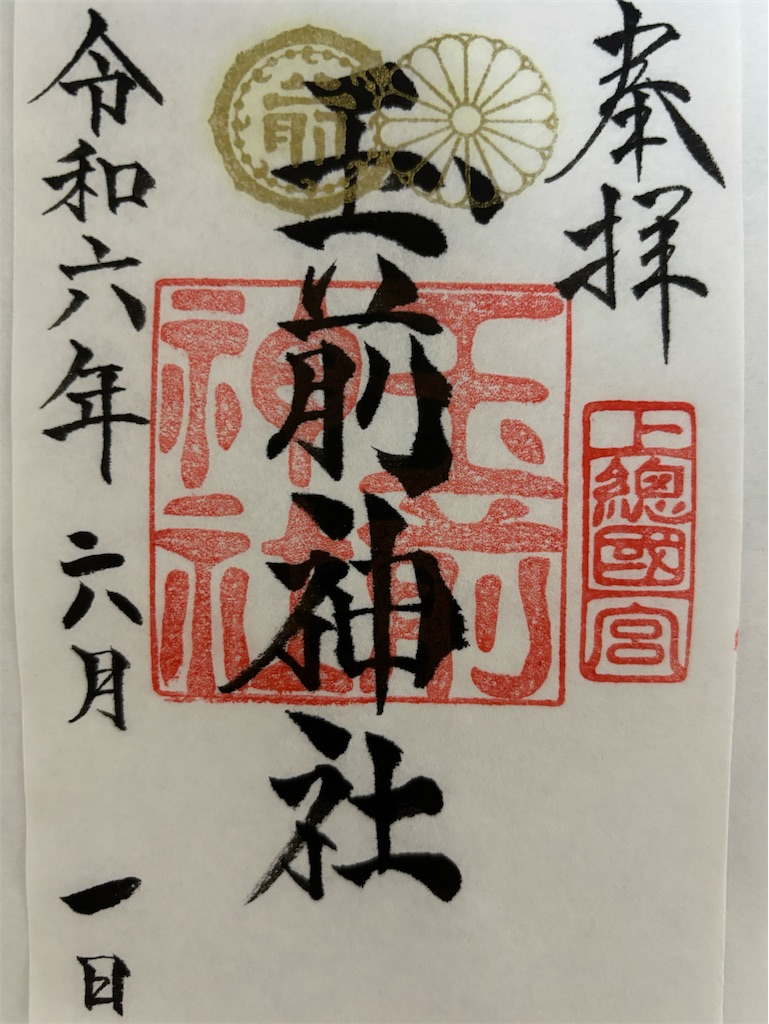 奉拜
上總國一宮
玉前神社
玉前神社
前
令和六年六月一日